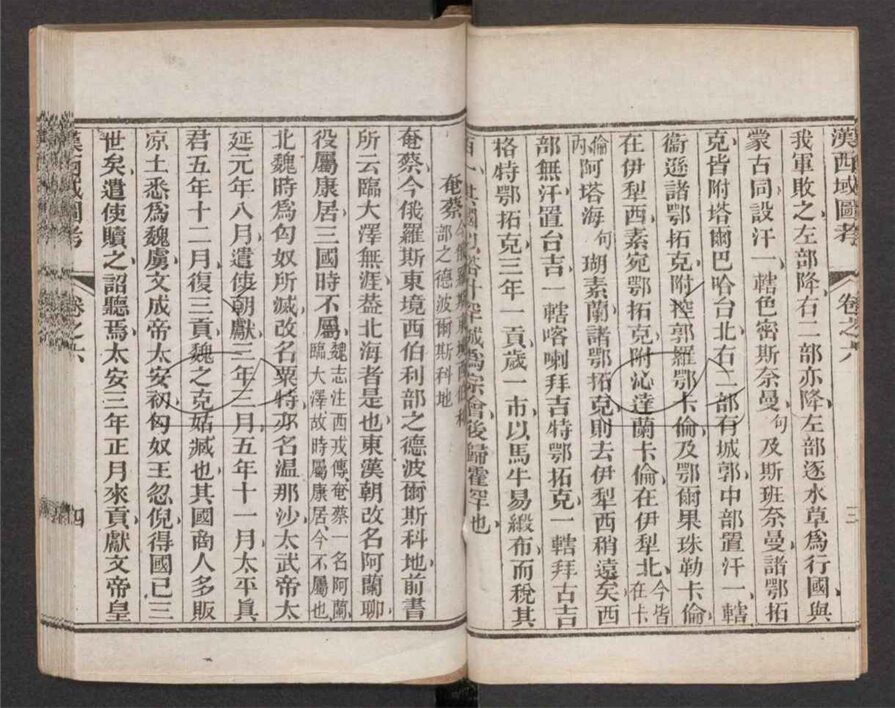 漢西域圖考 卷之六 三
我軍敗之左部降右二部亦降左部逐水草爲行國與
蒙古同設汗一轄色密斯奈曼句及斯班奈曼諸鄂拓
克皆附塔爾巴哈台北右二部有城郭中部置汗一轄
衞遜諸鄂拓克附控郭羅鄂卡倫及鄂爾果珠勒卡倫
在伊犁西素宛鄂拓克附沁達蘭卡倫在伊犁北今皆在卡
倫內阿塔海句瑚素蘭諸鄂拓克則去伊犁西稍遠矣西
部無汗置台吉一轄喀喇拜吉特鄂拓克一轄拜古吉
格特鄂拓克三年一貢歲一市以馬牛易緞布而稅其
百一其國以塔什罕城爲宗會後歸霍罕也
奄蔡今俄羅斯東境西伯利部之德波爾斯科地
奄蔡今俄羅斯東境西伯利部之德波爾斯科地前書
所云臨大澤無涯葢北海者是也東漢朝改名阿蘭聊
役屬康居三國時不屬魏志注西戎傳奄蔡一名阿蘭臨大澤故時屬康居今不屬也
北魏時爲匈奴所滅改名粟特亦名温那沙太武帝太
延元年八月遣使朝獻三年三月五年十一月太平眞
君五年十二月復三貢魏之克姑臧也其國商人多販
凉土悉爲魏虜文成帝太安初匈奴王忽倪得國已三
世矣遣使贖之詔聽焉太安三年正月來貢獻文帝皇
漢西域圖考 卷之六 四